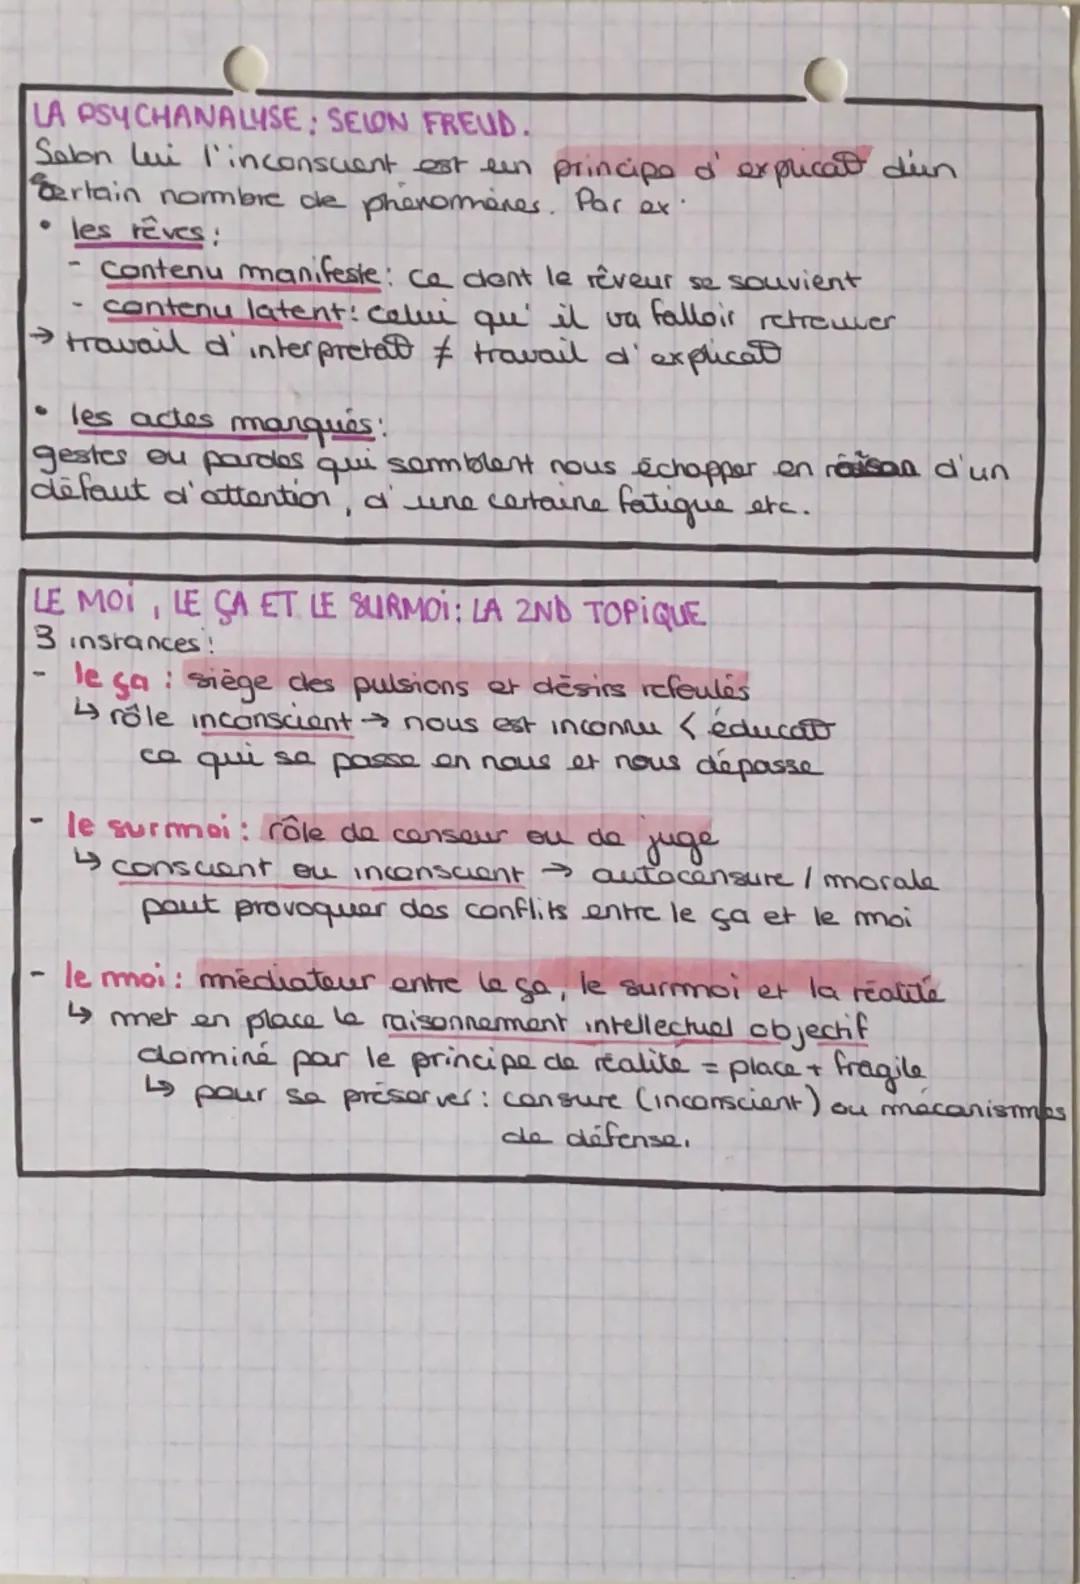 LA PSYCHANALYSE : SELON FREUD.
Selon lui l'inconscient est un principe d'explicat° d'un
certain nombre de phénomènes. Par ex :
• les rêves :
- contenu manifeste : ce dont le rêveur se souvient
- contenu latent : celui qu'il va falloir retrouver
→ travail d'interprétat° ≠ travail d'explicat°
• les actes manqués :
gestes ou paroles qui semblent nous échapper en raison d'un
défaut d'attention, d'une certaine fatigue etc.
LE MOI, LE ÇA ET LE SURMOI : LA 2ND TOPIQUE
3 instances :
- le ça : siège des pulsions et désirs refoulés
↳ rôle inconscient → nous est inconnu < éducat°
ce qui se passe en nous et nous dépasse
- le surmoi : rôle de censeur ou de juge
↳ conscient ou inconscient → autocensure / morale
peut provoquer des conflits entre le ça et le moi
- le moi : médiateur entre le ça, le surmoi et la réalité
↳ met en place le raisonnement intellectuel objectif
dominé par le principe de réalité = place + fragile
↳ pour se préserver : censure (inconscient) ou mécanismes
de défense.